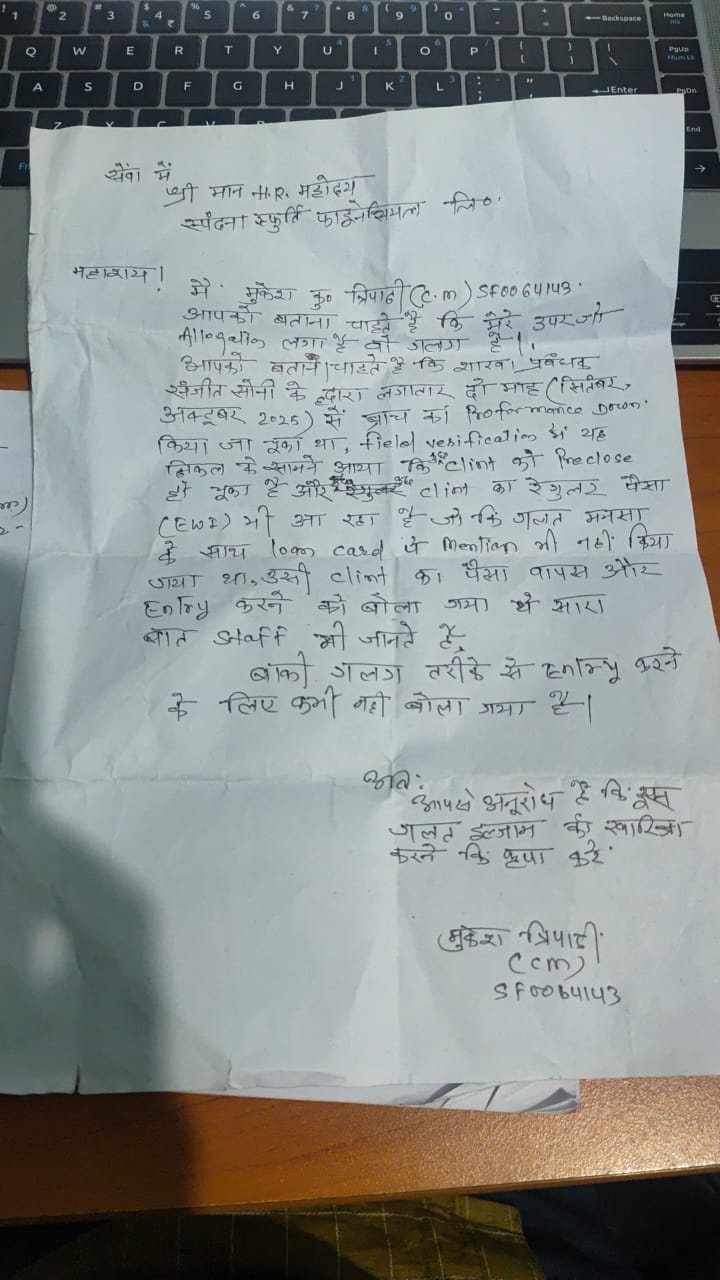 सेवा में
श्री मान H.R. महोदय
स्पंदना स्फुर्ति फाइनेंसियल लि०
महाशय!
मै मुकेश कु० त्रिपाठी (C.M) SF0064143.
आपको बताना चाहते है कि मेरे उपर जो
Allogatin लगा है वो गलग है।
आपको बताने चाहते है कि शाखा प्रबंधक
संजीत सोनी के द्वारा लगातार दो माह (सितंबर,
अक्टूबर 2025) से ब्रांच का Proformance Down.
किया जा चूका था, field verification में यह
निकल के सामने आया कि clint को Preclose
हो चूका है और clint का रेगुलर पैसा
(EWI) भी आ रहा है जो कि गलत मनसा
के साथ loan card पे mention भी नहीं किया
गया था, उसी clint का पैसा वापस और
Entry करने को बोला गया थे सारा
बात staff भी जानते है,
बाकी गलग तरीके से Entry करने
के लिए कभी नही बोला गया है।
अतः
आपसे अनूरोध है कि इस
गलत इल्जाम को खारिज
करने कि कृपा करें.
मुकेश त्रिपाठी
(CM)
SF0064143
! 1
@ 2
# 3
$ 4 ₹
% 5
^ 6
& 7
* 8
( 9
) 0
Backspace
Home
Q W E R T Y U I O P
PgUp
A S D F G H J K L
Enter
PgDn
End